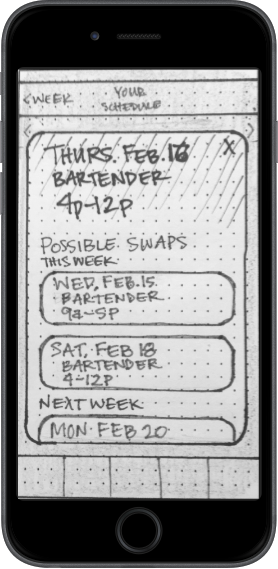 <WEEK
YOUR
SCHEDULE
THURS. FEB. 16
X
BARTENDER
4p-12p
POSSIBLE SWAPS
THIS WEEK
WED, FEB. 15
BARTENDER
9a-5p
SAT, FEB 18
BARTENDER
4-12p
NEXT WEEK
MON. FEB 20